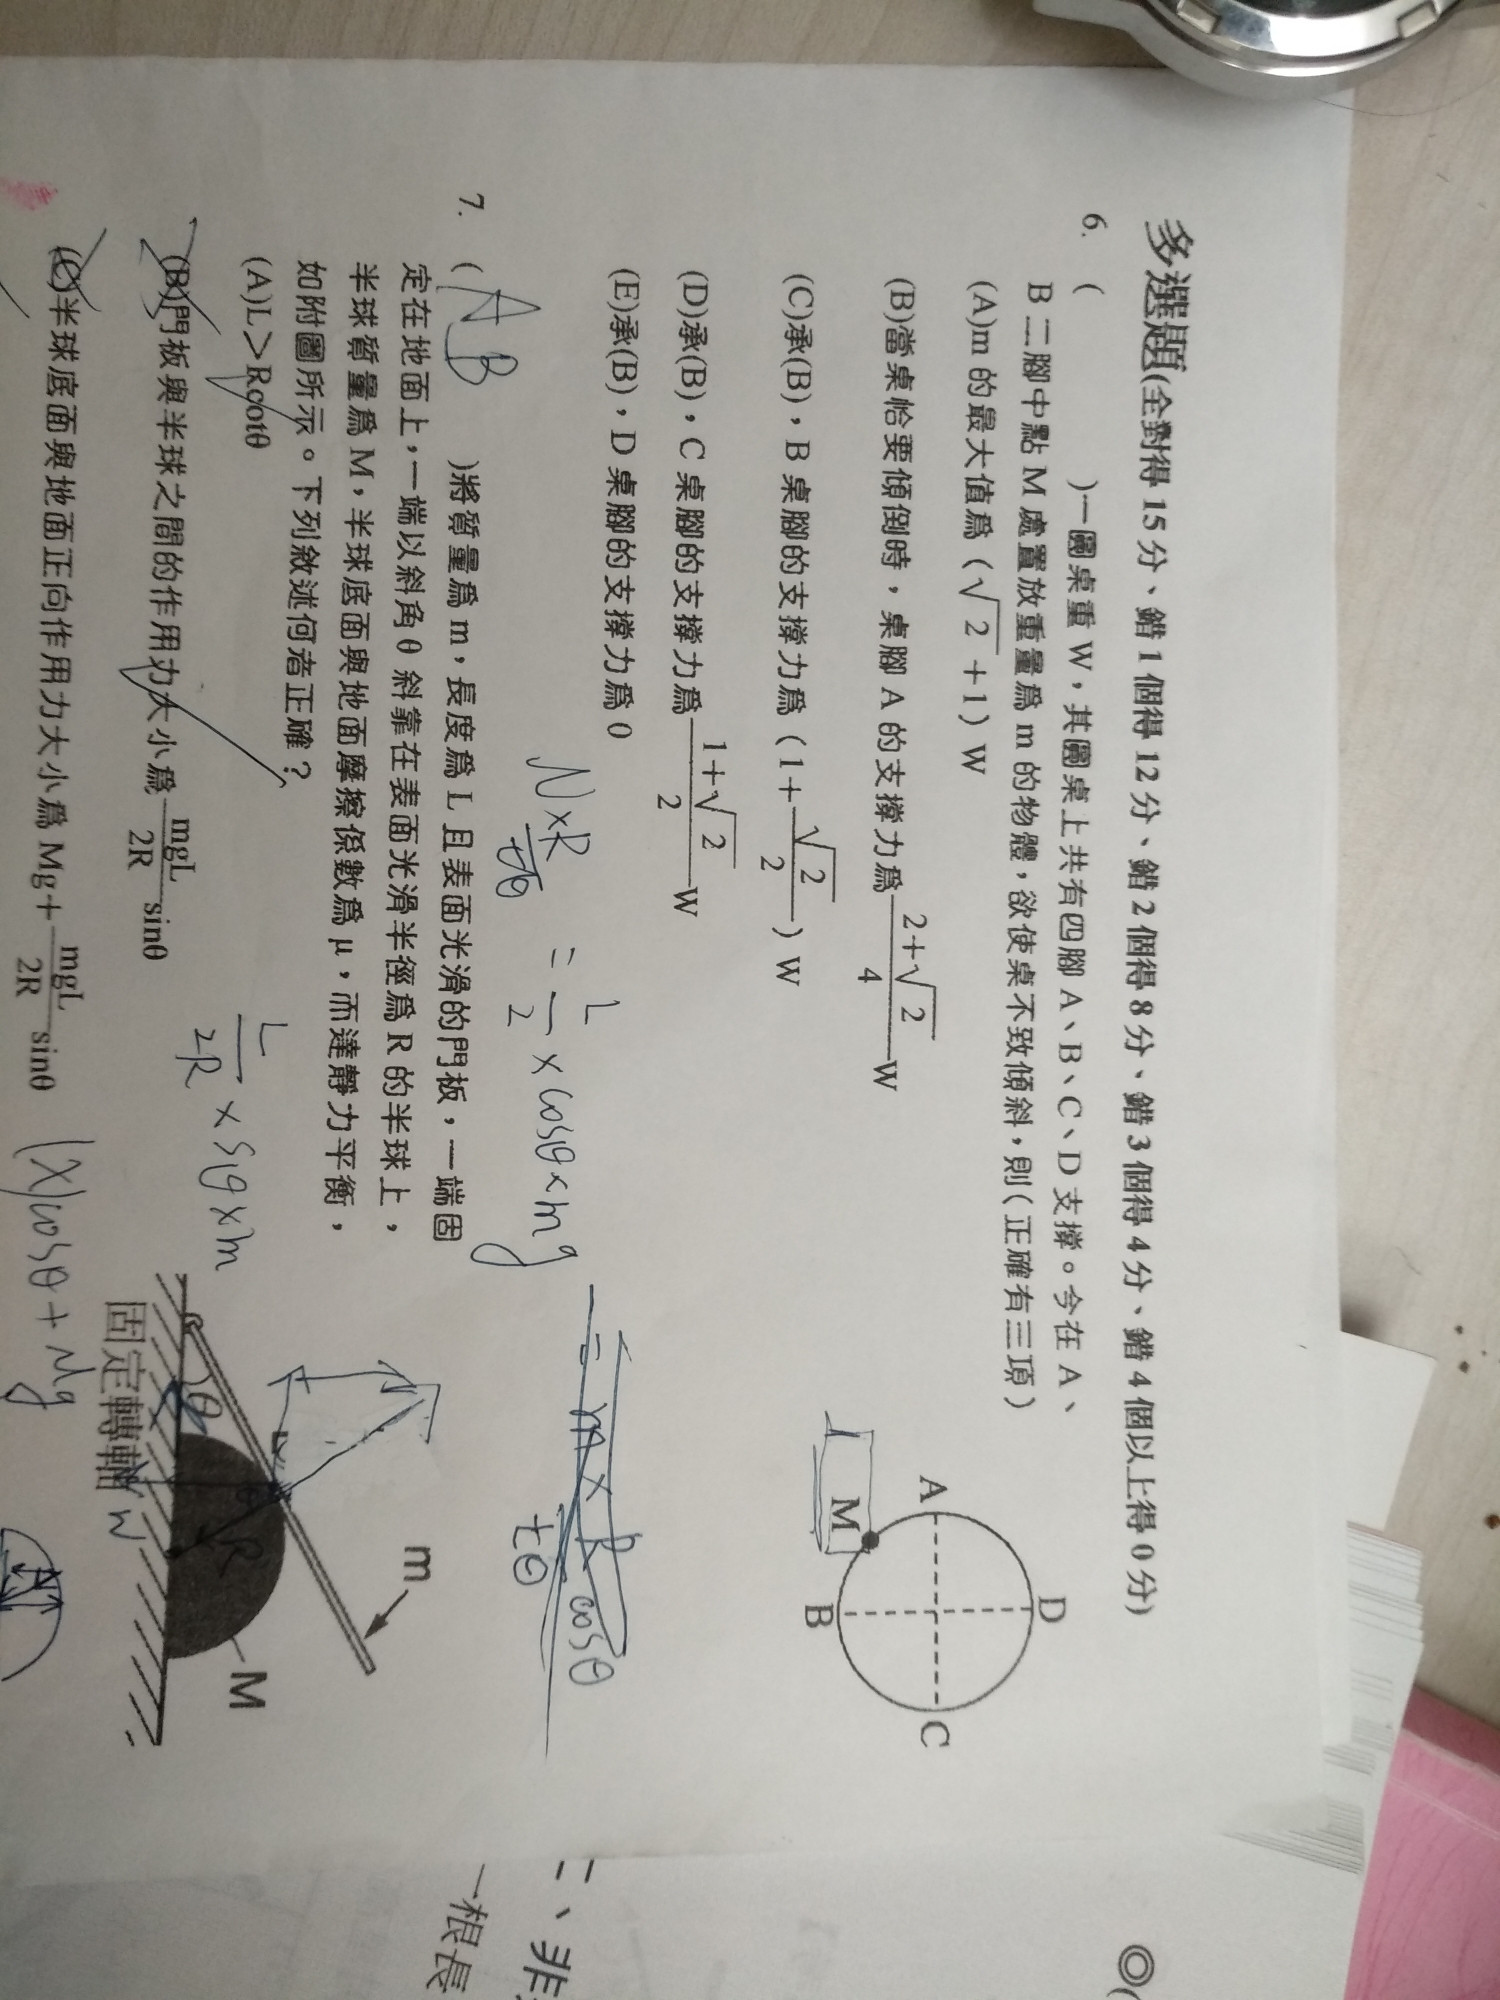 多選題(全對得15分、錯1個得12分、錯2個得8分、錯3個得4分、錯4個以上得0分)
6. ( )一圓桌重W，其圓桌上共有四腳A、B、C、D支撐。今在A、
B二腳中點M處置放重量為m的物體，欲使桌不致傾斜，則(正確有三項)
(A)m的最大值為(√2+1)W
(B)當桌恰要傾倒時，桌腳A的支撐力為(2+√2)/4 W
(C)承(B)，B桌腳的支撐力為(1+√2/2)W
(D)承(B)，C桌腳的支撐力為(1+√2)/2 W
(E)承(B)，D桌腳的支撐力為0
A
B
C
D
M
N×R/tθ = L/2 ×cosθ×mg
7. ( AB )將質量為m，長度為L且表面光滑的門板，一端固
定在地面上，一端以斜角θ斜靠在表面光滑半徑為R的半球上，
半球質量為M，半球底面與地面摩擦係數為μ，而達靜力平衡，
如附圖所示。下列敘述何者正確？
(A)L＞Rcotθ
(B)門板與半球之間的作用力大小為mgL/2R sinθ
L/2R ×sθ×m
(C)半球底面與地面正向作用力大小為Mg+mgL/2R sinθ
(X)cosθ+Mg
m
M
θ
R
固定轉軸
二、非
一根長
◎(